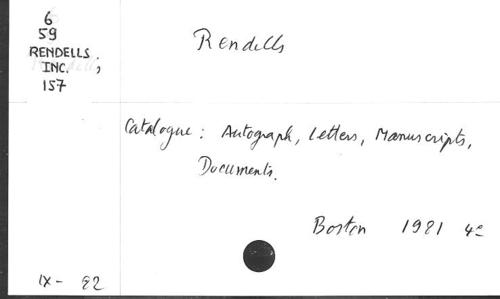 6
59
RENDELLS
INC. ;
157
Rendells
Catalogue: Autograph, Letters, Manuscripts,
Documents.
Boston 1981 4º
IX - 82